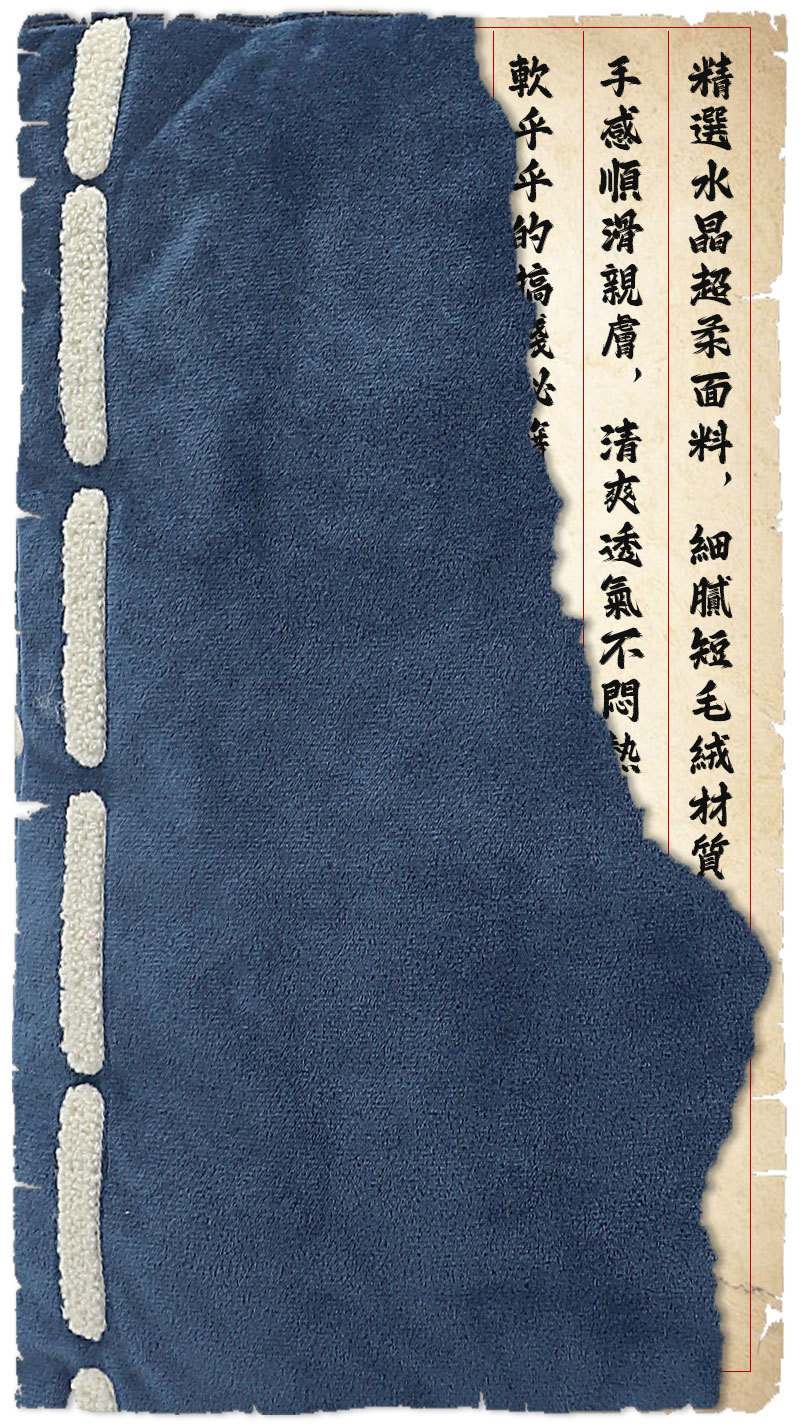 精選水晶超柔面料，細膩短毛絨材質
手感順滑親膚，清爽透氣不悶熱
軟乎乎的搞錢秘